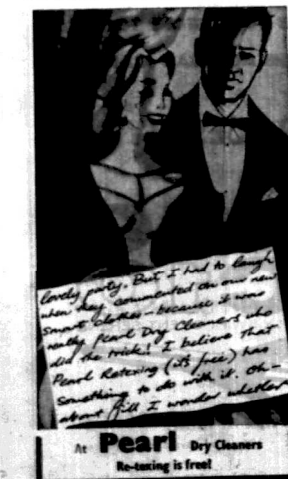 lovely party. But I had to laugh
when they commented on our new
smart clothes - because it was
really Pearl Dry Cleaners who
did the trick! I believe that
Pearl Retexing (it's free) has
something to do with it. Oh -
about Bill I wonder whether
At Pearl Dry Cleaners
Re-texing is free!